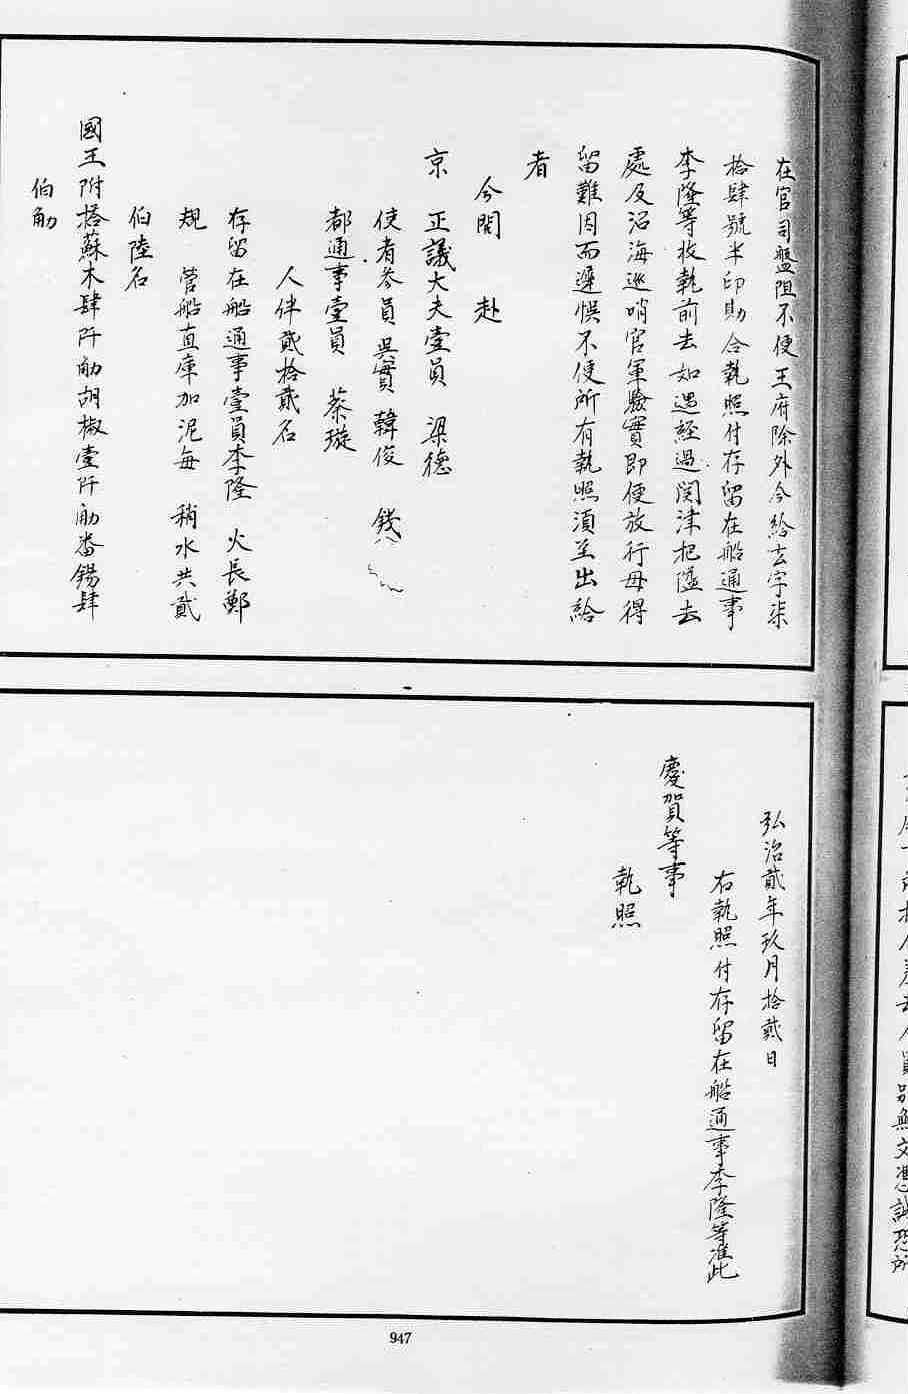 在官司盤阻不便王府除外今給玄字柒
拾肆號半印勘合執照付存留在船通事
李隆等收執前去如遇經過関津把隘去
處及沿海巡哨官軍驗實即便放行毋得
留難因而遲悞不便所有執照須至出給
者
今開赴
京 正議大夫壹員 梁德
使者叁員 吳實 韓俊 錢
都通事壹員 蔡璇
人伴貳拾貳名
存留在船通事壹員李隆 火長鄭
規 管船直庫加泥每 稍水共貳
伯陸名
國王附搭蘇木肆阡觔胡椒壹阡觔番錫肆
伯觔
弘治貳年玖月拾貳日
右執照付存留在船通事李隆等准此
慶賀等事
執照
員別無文憑誠恐所
947